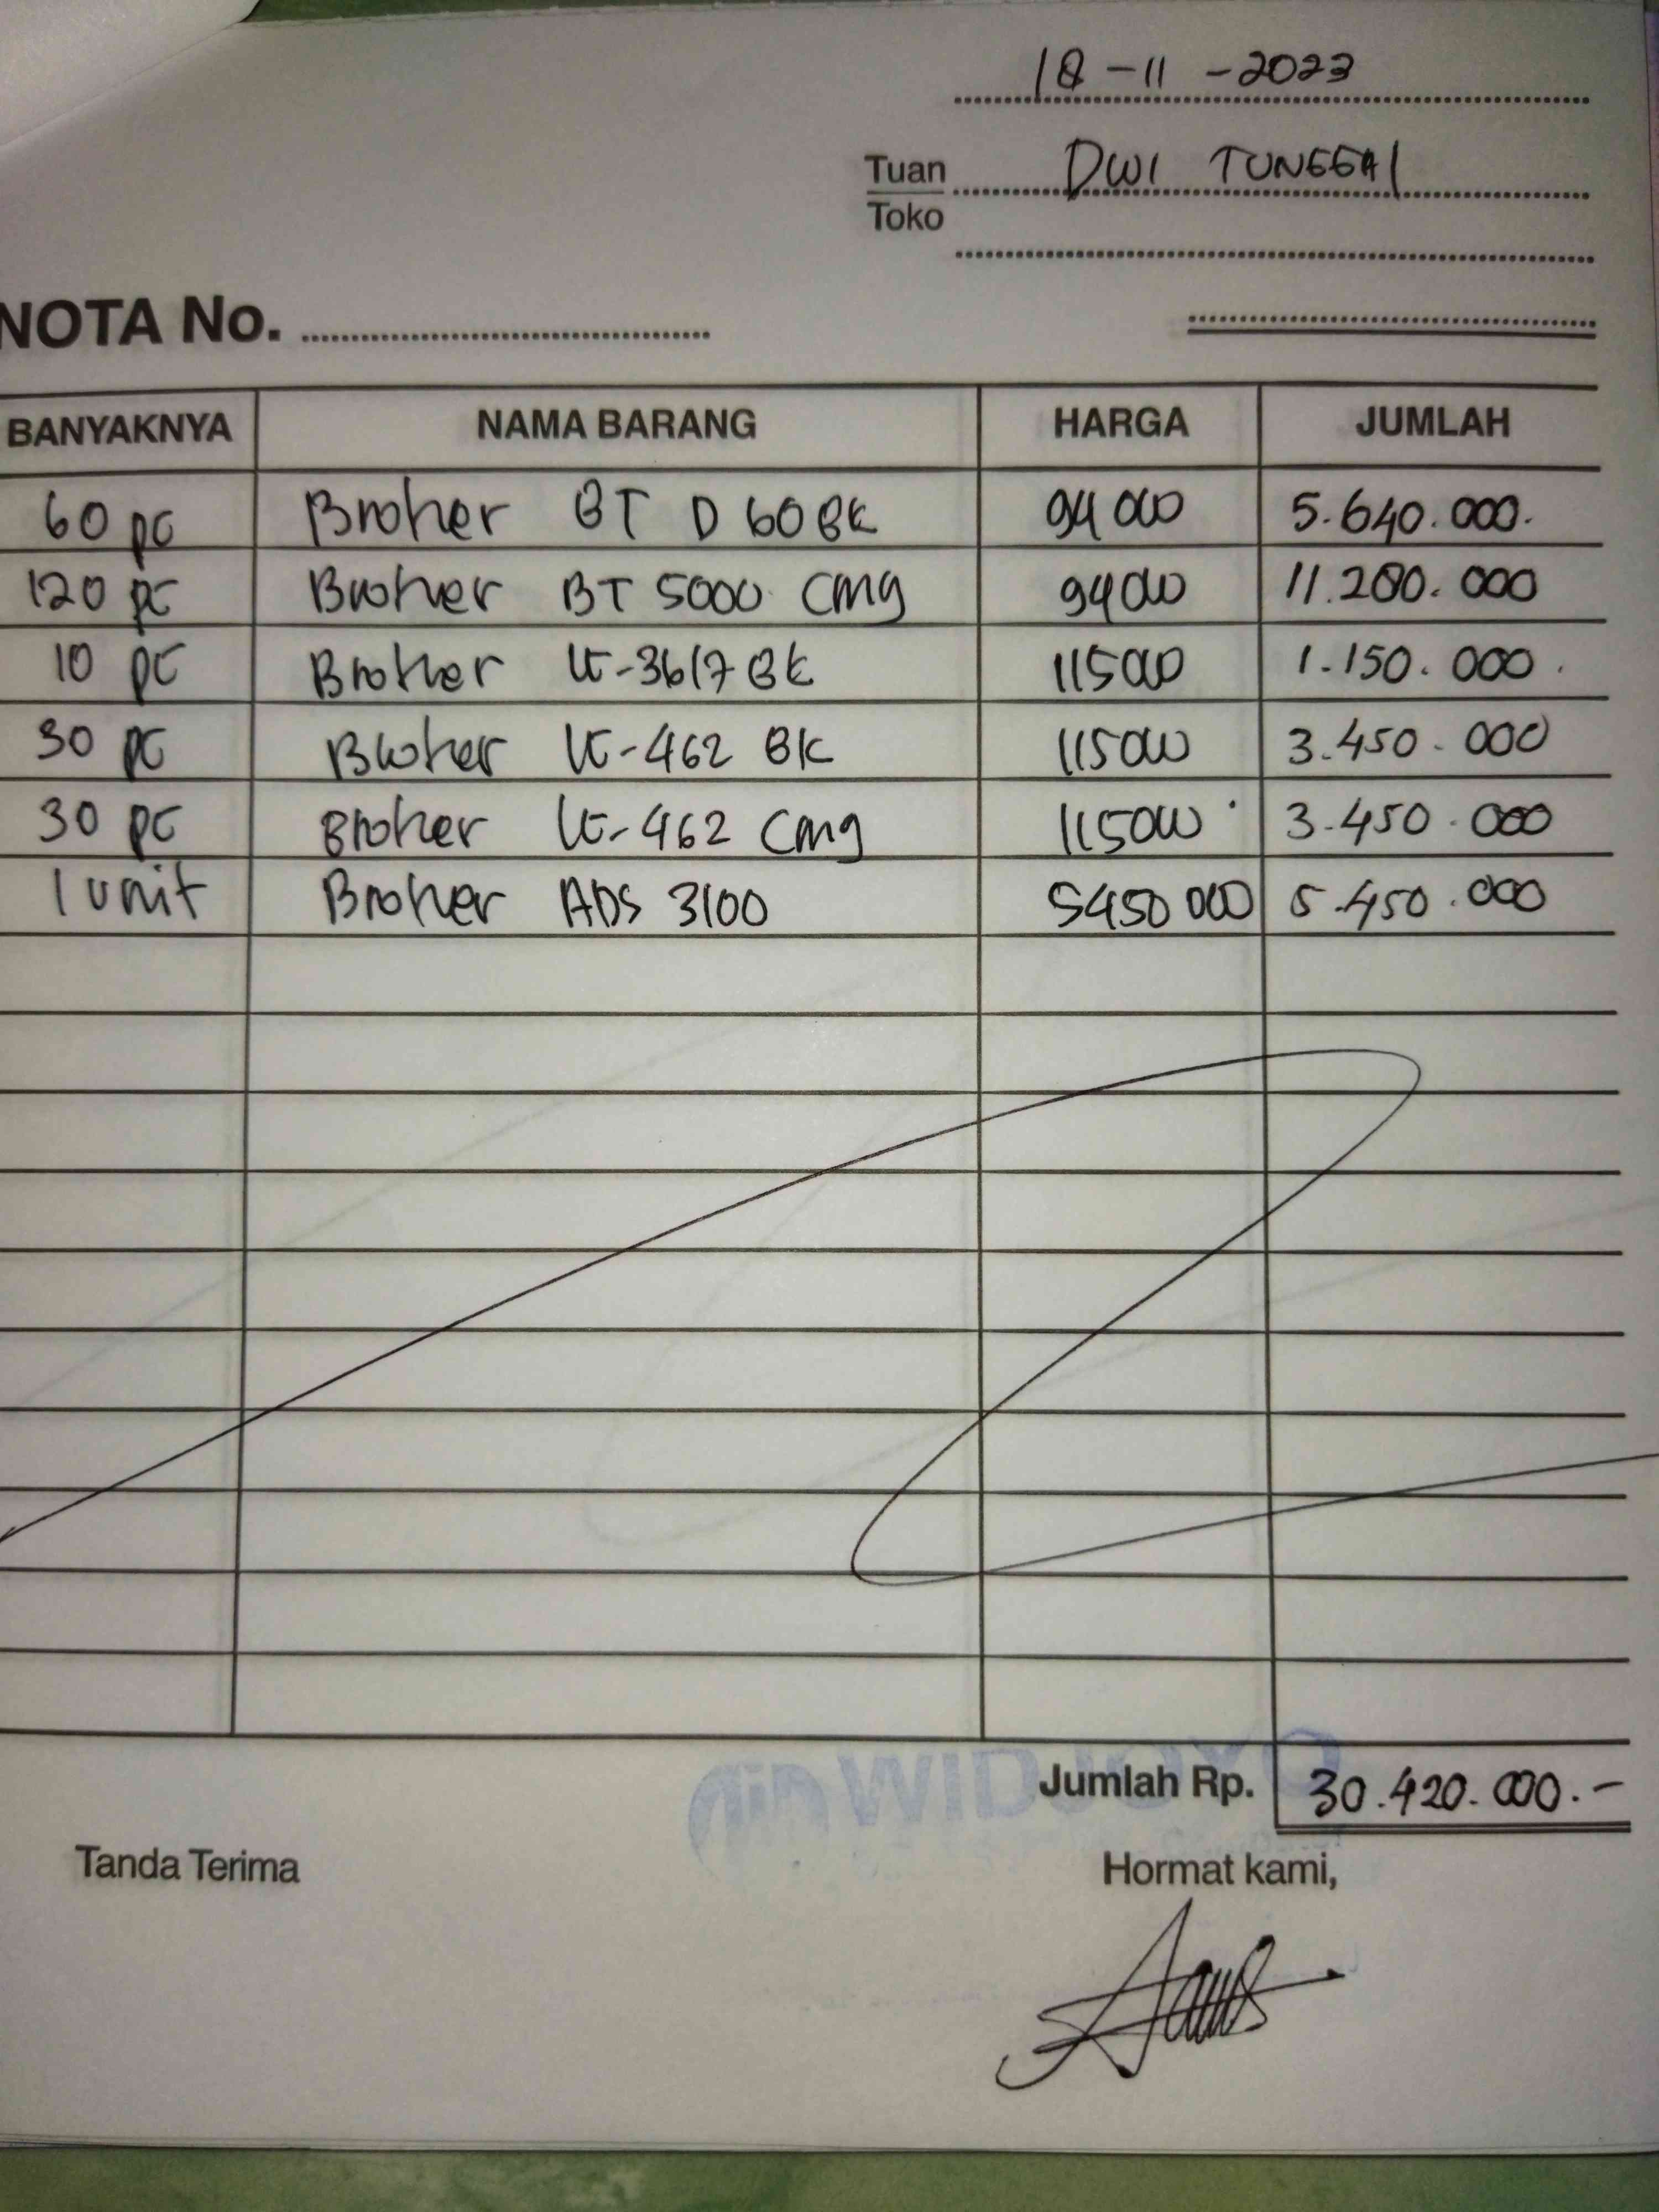 18-11-2023
Tuan DWI TUNGGAL
Toko
NOTA No.
BANYAKNYA NAMA BARANG HARGA JUMLAH
60 pc Brother BT D 60 BK 94 000 5.640.000.
120 pc Brother BT 5000 CMY 94 000 11.280.000
10 pc Brother LC-3617 BK 115 000 1.150.000.
30 pc Brother LC-462 BK 115 000 3.450.000
30 pc Brother LC-462 CMY 115 000 3.450.000
1 unit Brother ADS 3100 5450 000 5.450.000
WIDJOYO
Jumlah Rp. 30.420.000.-
Tanda Terima Hormat kami,